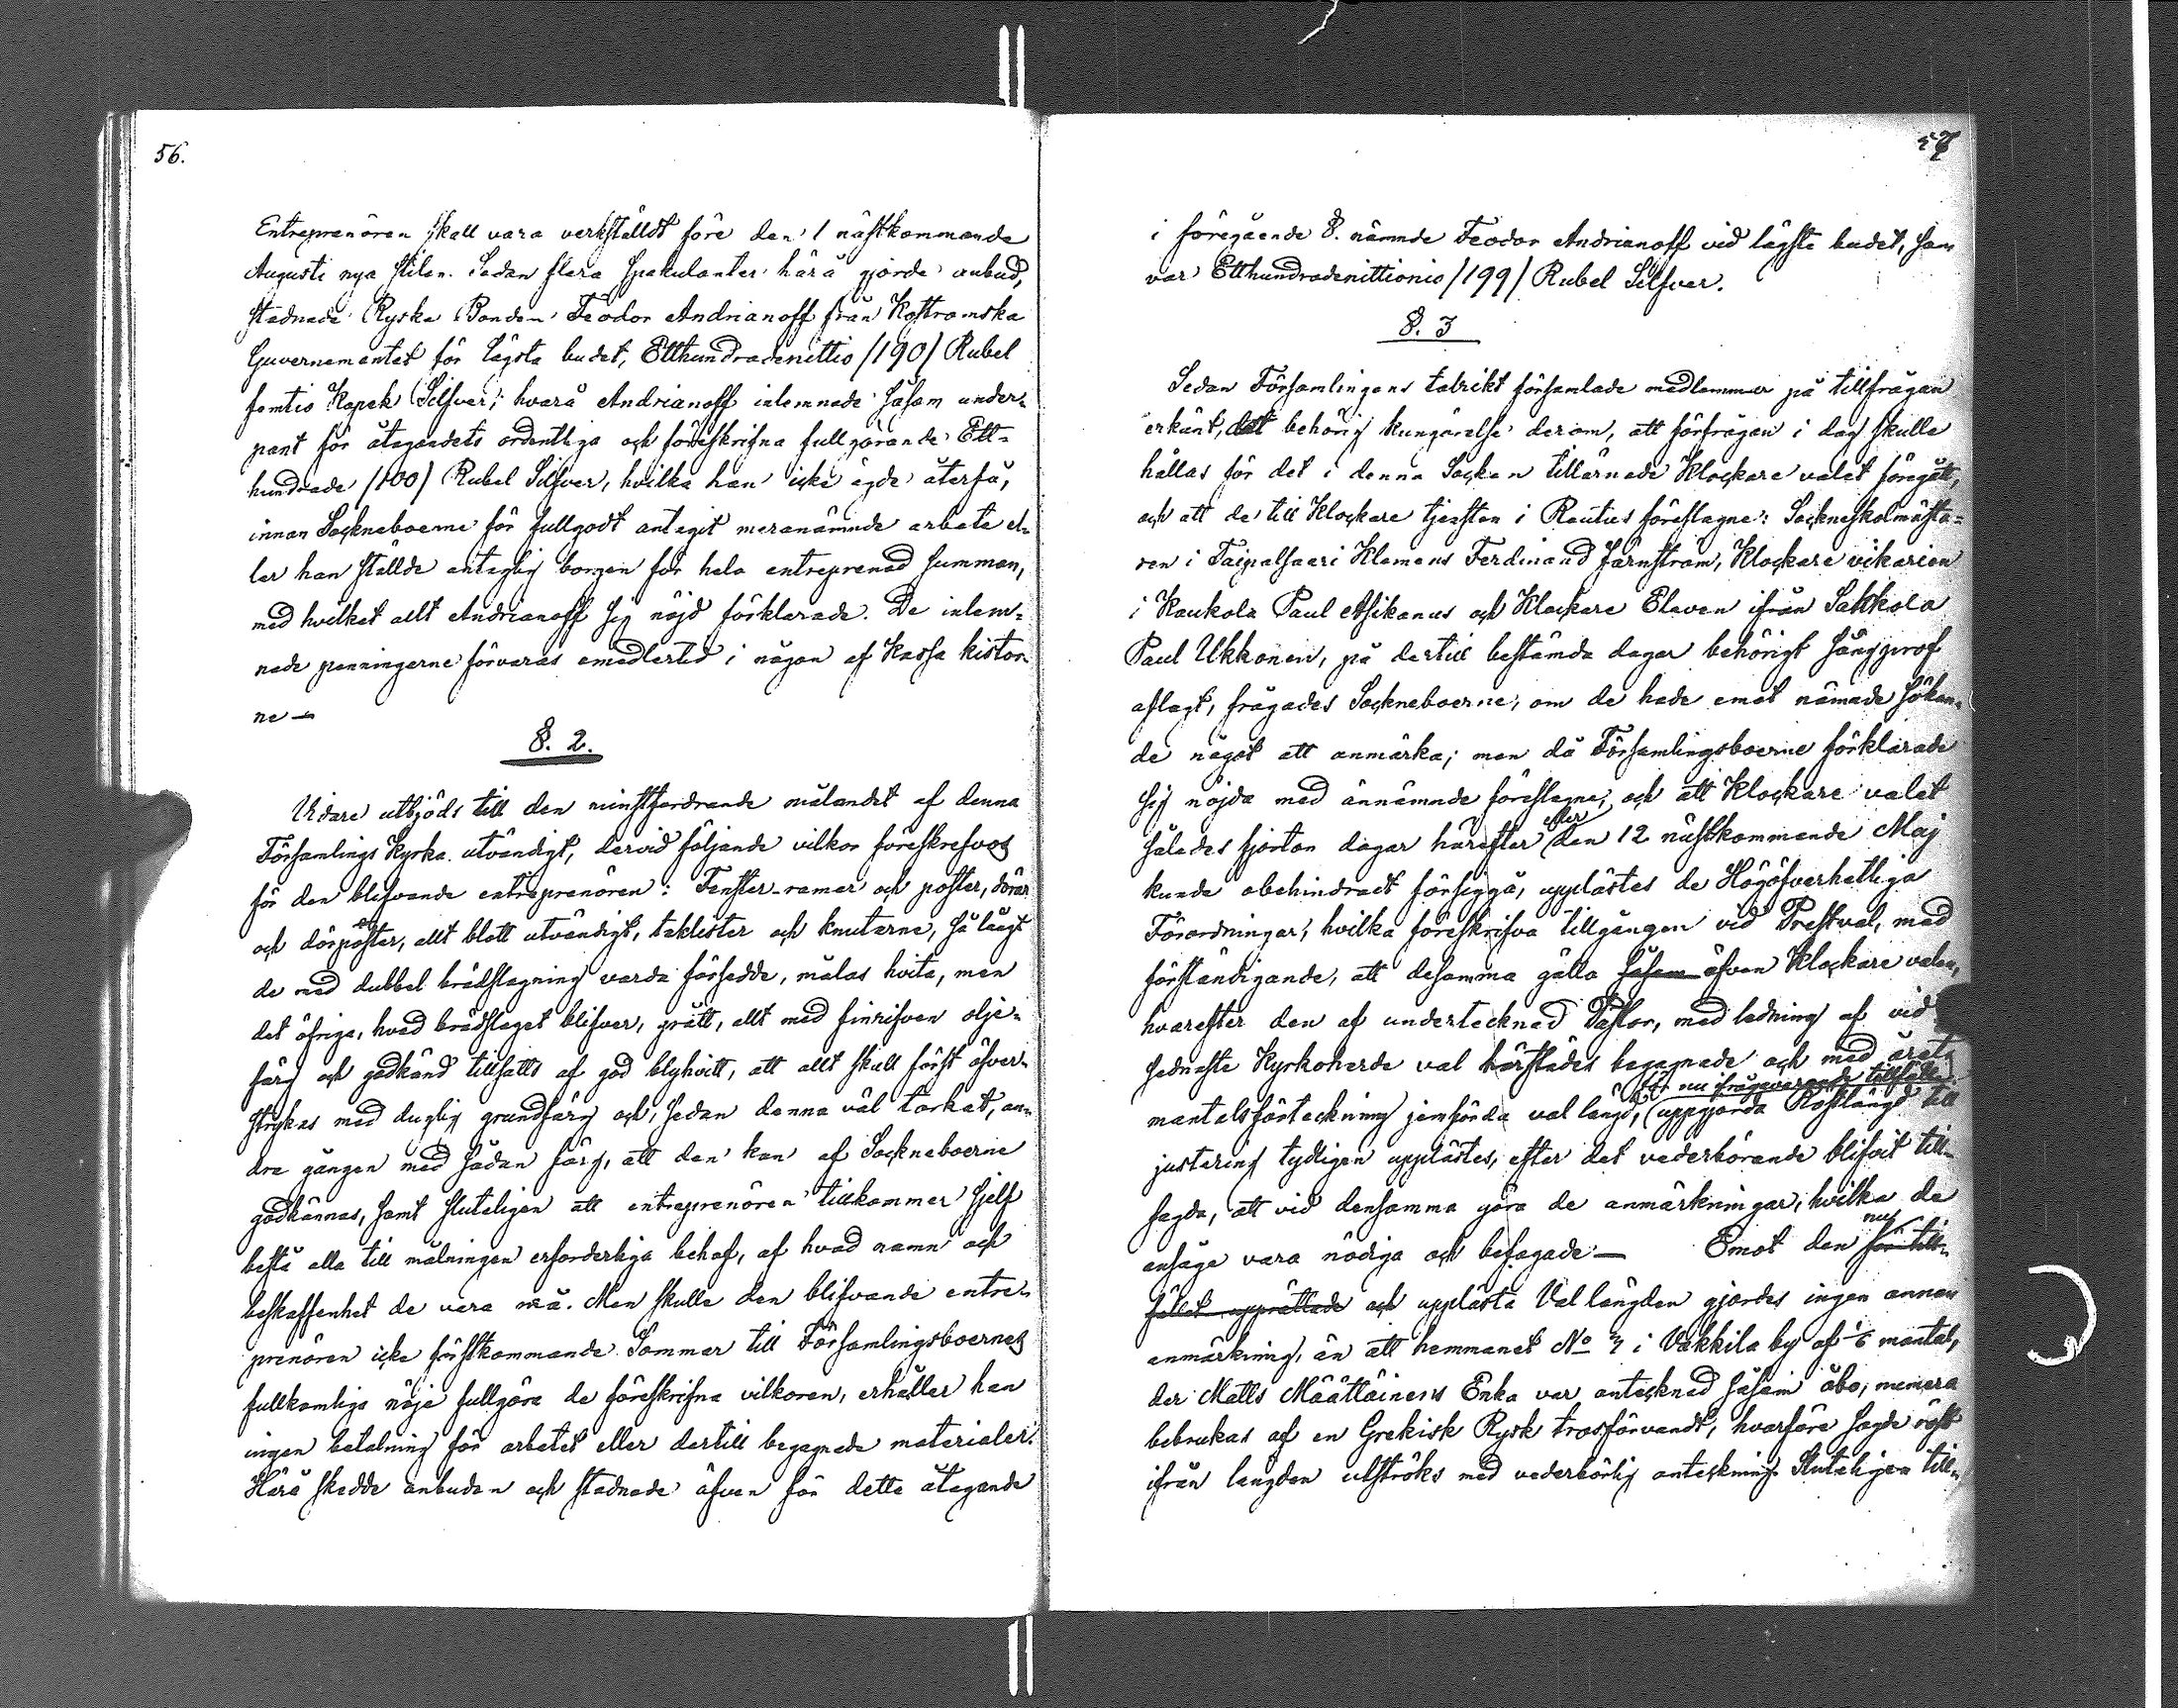 56.
Entreprenören skall vara verkställdt före den 1 nästkommande
Augusti nya stilen. Sedan flera spekulanter härå gjorde anbud,
stadnade Ryska Bonden Feodor Andrianoff från Kostromska
Guvernementet för lägsta budet, Etthundradenittio /190/ Rubel
femtio Kopek Silfver; hvarå Andrianoff inlemnade såsom under-
pant för åtagandets ordentliga och föreskrifna fullgörande Ett-
hundrade /100/ Rubel Silfver, hvilka han icke ägde återfå,
innan Sockneboerne för fullgodt antagit meranämnde arbete el-
ler han ställde antaglig borgen för hela entreprenad summan,
med hvilket allt Andrianoff sig nöjd förklarade. De inlem-
nade penningerne förvaras emedlertid i någon af Kassa kistor-
ne —
§. 2.
Vidare utbjöds till den minstfordrande målandet af denna
Församlings Kyrka utvändigt, dervid följande vilkor föreskrefvos
för den blifvande entreprenören: Fenster-ramar och poster, dörar
och dörposter, allt blott utvändigt, taklister och knutarne, så långt
de med dubbel brädslagning varda försedde, målas hvita, men
det öfriga, hvad brädslaget blifver, grått, allt med finrifven olje-
färg och godkänd tillsatts af god blyhvitt, att allt skall först öfver-
strykas med duglig grundfärg och, sedan denna väl torkat, an-
dra gången med sådan färg, att den kan af Sockneboerne
godkännas, samt sluteligen att entreprenören tillkommer sjelf
bestå alla till målningen erforderliga behof, af hvad namn och
beskaffenhet de vara må. Men skulle den blifvande entre-
prenören icke förstkommande Sommar till Församlingsboernes
fullkomliga nöje fullgöra de föreskrifna vilkoren, erhåller han
ingen betalning för arbetet eller dertill begagnade materialer.
Härå skedde anbuden och stadnade äfven för detta åtagande
57
i föregående §. nämnde Feodor Andrianoff vid lägste budet, som
var Etthundradenittionio /199/ Rubel Silfver.
§. 3
Sedan Församlingens talrikt församlade medlemmar på tillfrågan
erkänt, att behörig kungörelse derom, att förfrågan i dag skulle
hållas för det i denna Socken tillärnade Klockare valet föregått,
och att de till Klockare tjensten i Rautus föreslagne: Sockneskolmästa-
ren i Taipalsaari Klemens Ferdinand Järnström, Klockare vikarien
i Kaukola Paul Ahikanus och Klockare Eleven ifrån Sakkola
Paul Ukkonen, på dertill bestämda dagar behörigt sångprof
aflagt, frågades Sockneboerne, om de hade emot nämnde sökan-
de något att anmärka; men då Församlingsboerne förklarade
sig nöjda med ännämnde föreslagne, och att Klockare valet
således fjorton dagar härefter eller den 12 nästkommande Maj
kunde obehindradt försiggå, upplästes de Högöfverhetliga
Förordningar, hvilka föreskrifva tillgången vid Prestval, med
förständigande, att desamma gälla såsom äfven Klockare valen,
hvarefter den af undertecknad Pastor, med ledning af vid
sednaste Kyrkoherde val härstädes begagnade och med årets
mantalsförteckning jemförda val längd, för nu ifrågavarande tillfälle uppgjorda Röstlängd till
justering tydligen upplästes, efter det vederbörande blifvit till-
sagda, att vid densamma göra de anmärkningar, hvilka de
ansåge vara nödiga och befogade — Emot den nu för till-
fället upprättade och upplästa Val längden gjordes ingen annan
anmärkning, än att hemmanet No 3 i Vakkila by af 1/6 mantal,
der Matts Määttäinens Enka var antecknad såsom åbo, numera
bebrukas af en Grekisk Rysk trosförvandt, hvarföre sagde röst
ifrån längden utströks med vederbörlig anteckning. Sluteligen till-